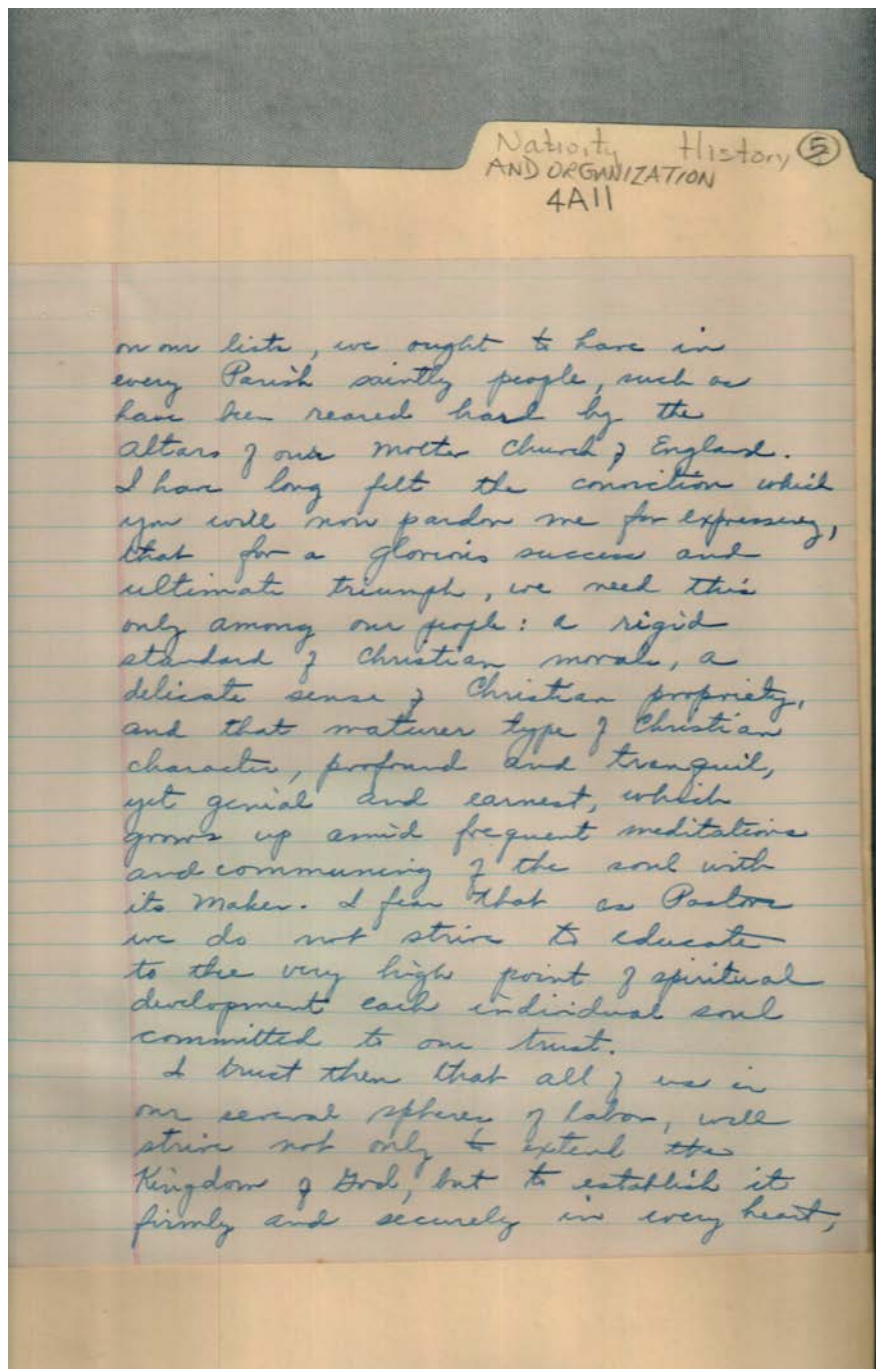 Nativity History 5
AND ORGANIZATION
4A11
on our lists, we ought to have in
every Parish saintly people, such as
have been reared hard by the
altars of our Mother Church of England.
I have long felt the conviction which
you will now pardon me for expressing,
that for a glorious success and
ultimate triumph, we need this
only among our people: a rigid
standard of Christian morals, a
delicate sense of Christian propriety,
and that maturer type of Christian
character, profound and tranquil,
yet genial and earnest, which
grows up amid frequent meditations
and communing of the soul with
its Maker. I fear that as Pastors
we do not strive to educate
to the very high point of spiritual
development each individual soul
committed to our trust.
I trust then that all of us in
our several spheres of labor, will
strive not only to extend the
Kingdom of God, but to establish it
firmly and securely in every heart,